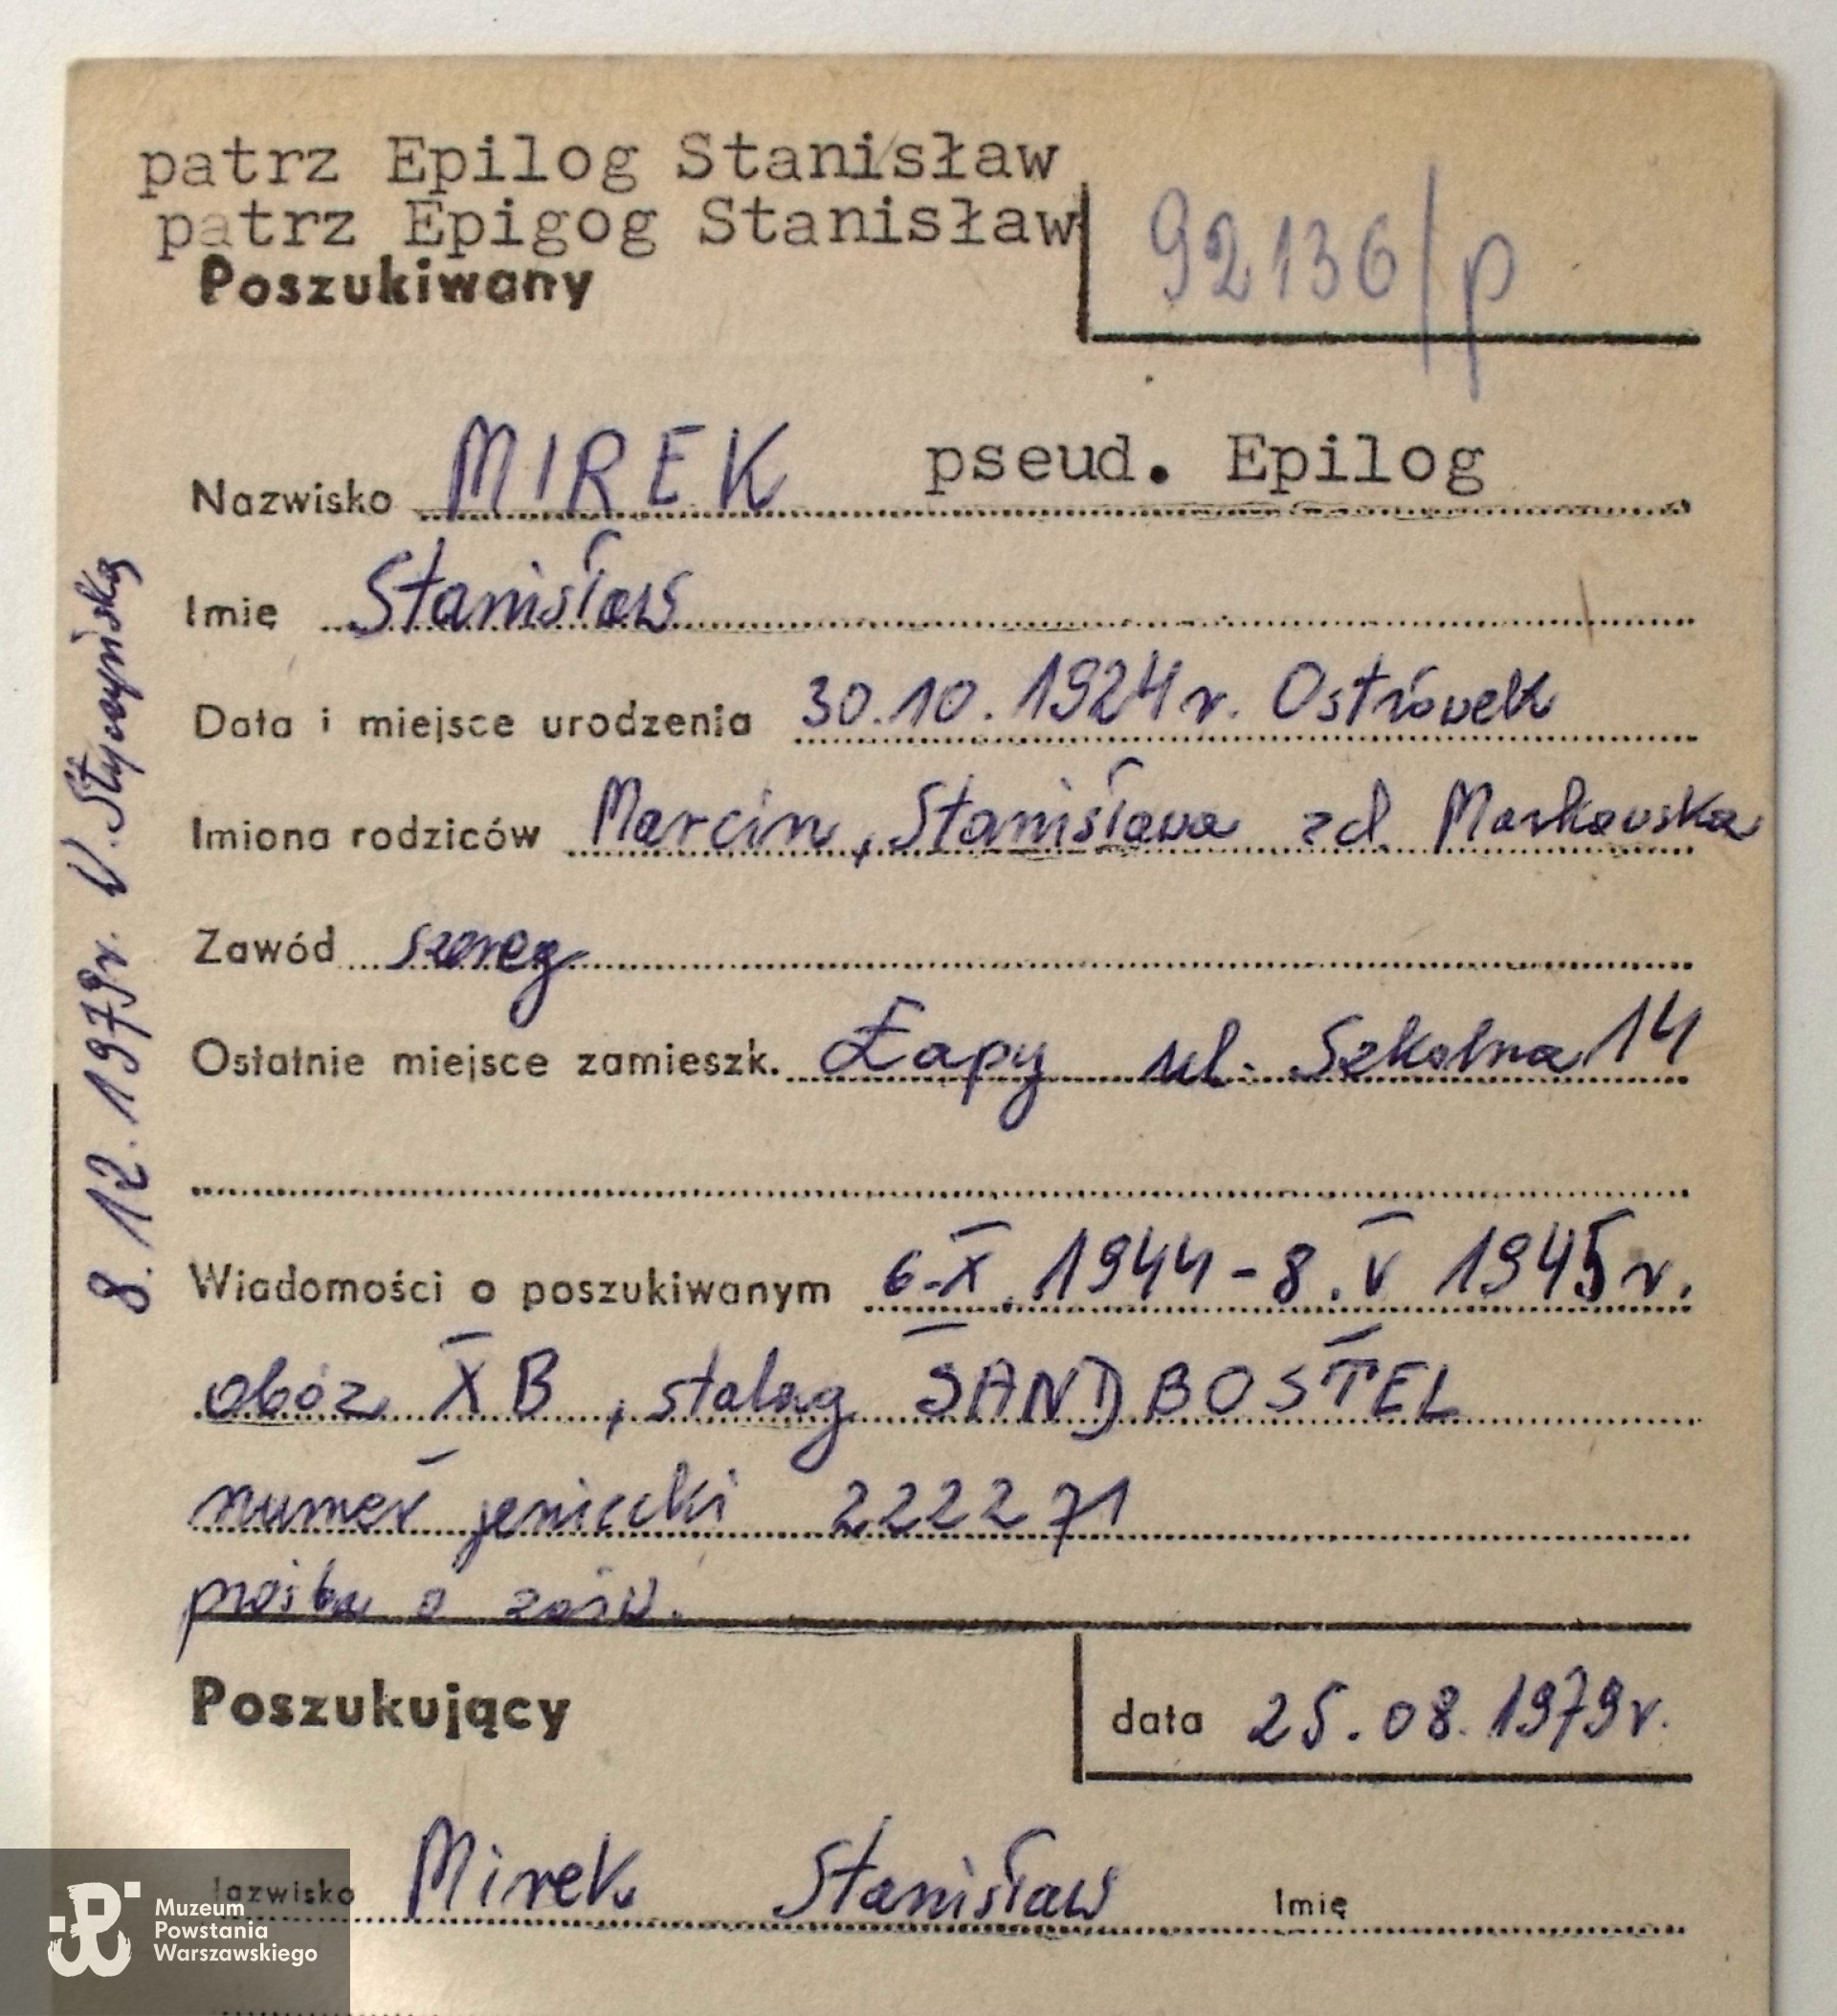 patrz Epilog Stanisław
patrz Epigog Stanisław
Poszukiwany
92136/p
Nazwisko MIREK pseud. Epilog
Imię Stanisław
Data i miejsce urodzenia 30.10.1924r. Ostrówek
Imiona rodziców Marcin, Stanisława zd. Markowska
Zawód szereg
Ostatnie miejsce zamieszk. Łapy ul. Szkolna 14
Wiadomości o poszukiwanym 6.X.1944-8.V 1945r.
obóz XB, stalag SANDBOSTEL
numer jeniecki 222271
prośba o zaśw.
Poszukujący
data 25.08.1979r.
Nazwisko Mirek Stanisław Imię
8.12.1979r. W.
Muzeum
Powstania
Warszawskiego